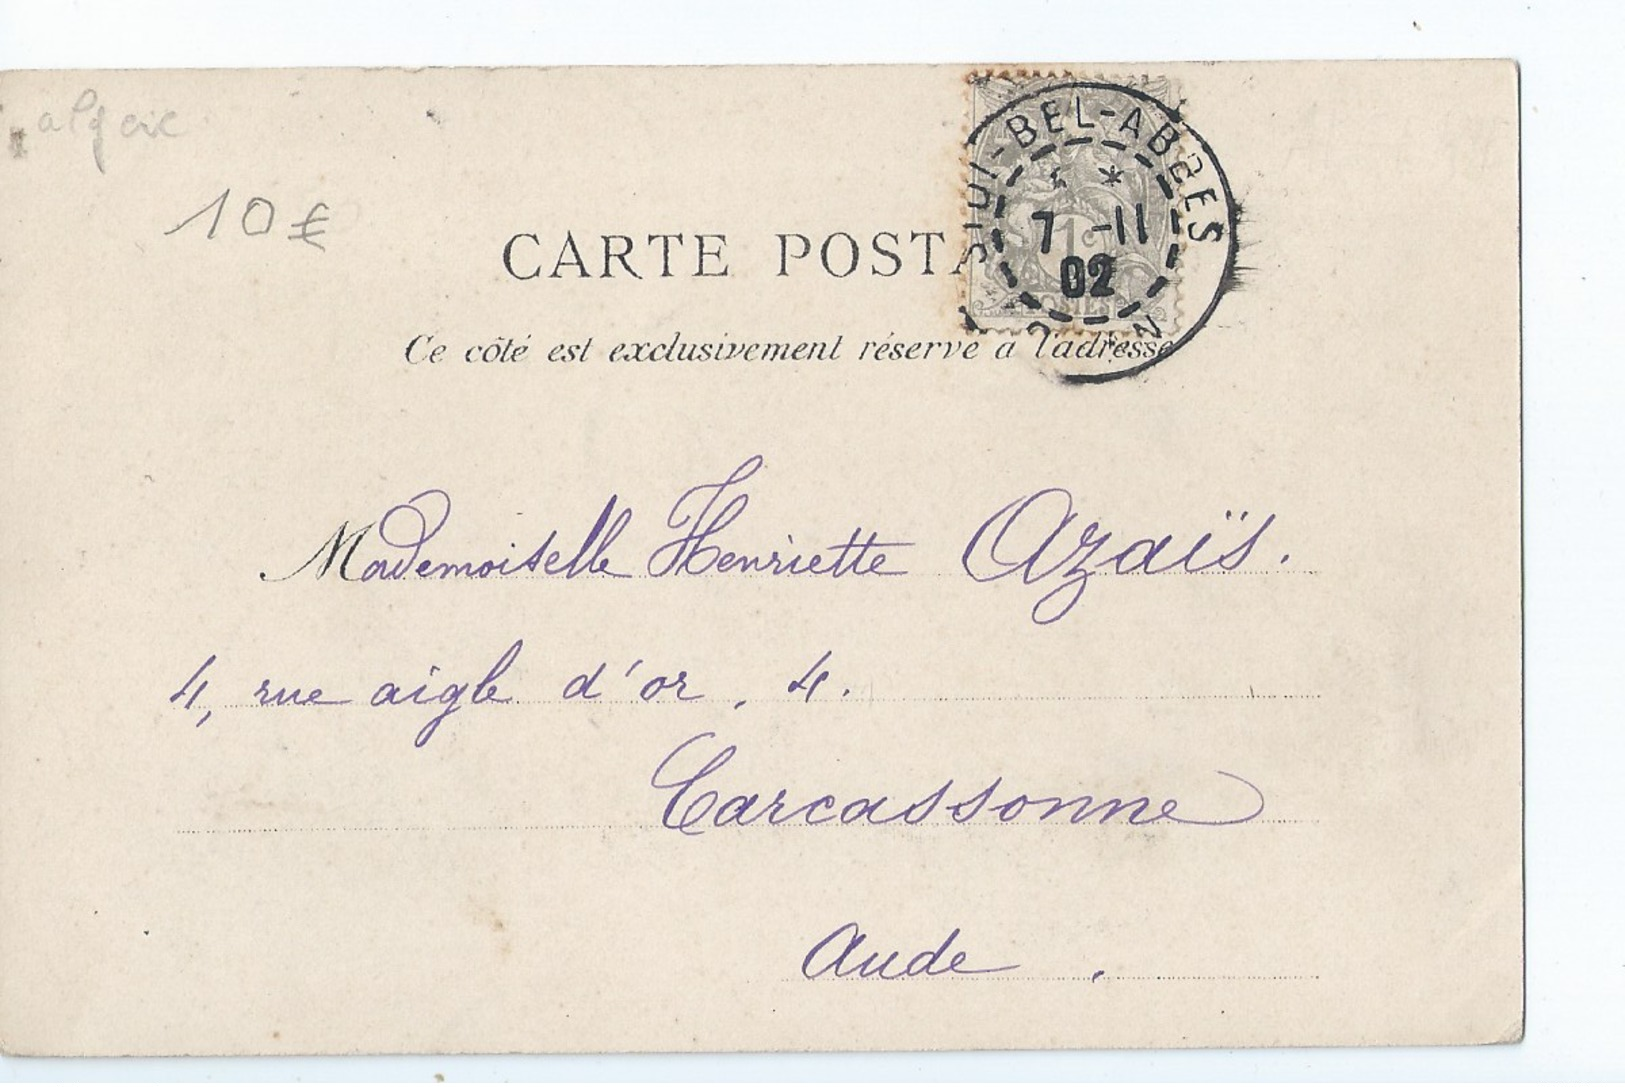 algerie
10€
CARTE POSTA
SIDI-BEL-ABBES
7 -11
02
1c
POSTES
Ce côté est exclusivement réservé a l'adresse
Mademoiselle Henriette Azaïs.
4, rue aigle d'or, 4.
Carcassonne
Aude.